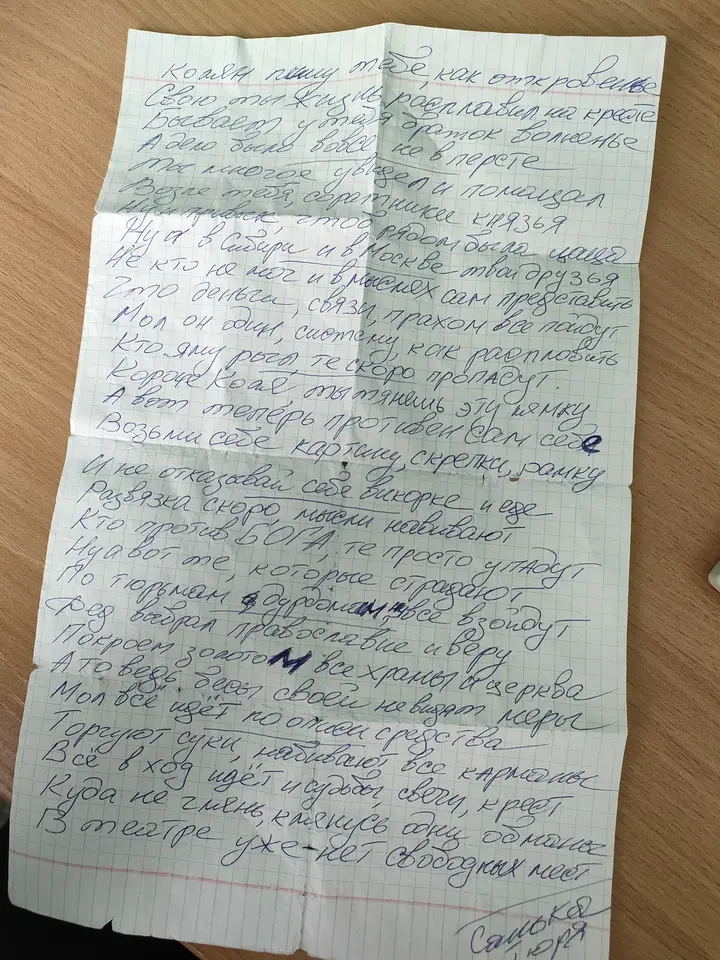 Колян пишу тебе, как откровенье
Свою ты жизнь, расплавил на кресте
Бывает у тебя браток волненье
А дело было вовсе не в персте
Ты многое увидел и помощал
Возле тебя, соратники князья
привык, чтоб рядом была
Ну а в Сибири и в Москве твои друзья
Не кто не мог и в мыслях сам представить
Что деньги, связи, прахом все пойдут
Мол он один, систему, как распловить
Кто яму рыл, те скоро пропадут.
Короче Коля, ты тянешь эту лямку
А вот теперь противен сам себе
Возьми себе картину, скрепки, рамку
И не отказывай себе викорке и еде
Развязка скоро, мысли навивают
Кто против БОГА, те просто упадут
Ну а вот те, которые страдают
По тюрьмам дурдомам, все взойдут
Фед выбрал православие и веру
Покроем золотом все храмы и церква
А то ведь бесы своей не видят меры
Мол всё идёт по описи средства
Торгуют суки, набивают все карманы
Всё в ход идёт и судьбы, свечи, крест
Куда не глянь, клянусь одни обманы
В театре уже нет свободных мест
Санька
Тюря